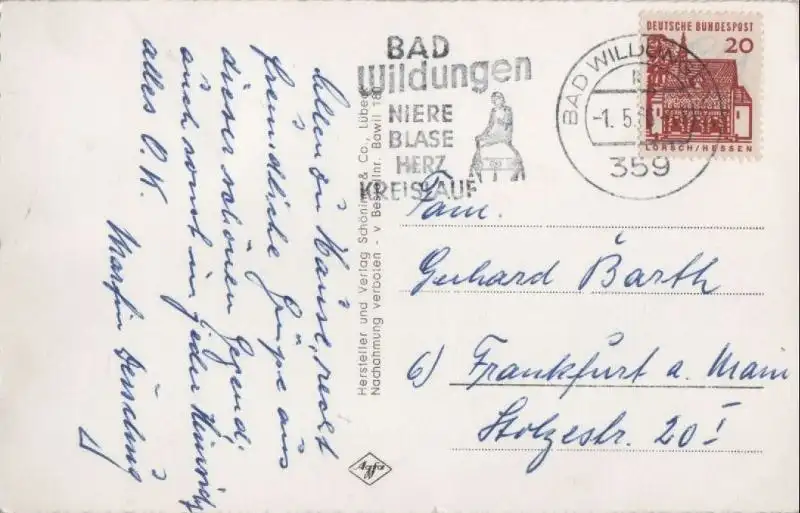 BAD
Wildungen
NIERE
BLASE
HERZ
KREISLAUF
BAD WILDUN
-1. 5.
359
DEUTSCHE BUNDESPOST
20
LORSCH/HESSEN
Ihr Lieben zu Hause, recht
freundliche Grüße aus
dieser schönen Gegend,
auch sonst in jeder Hinsicht
alles O.K.
Martin
Hersteller und Verlag Schöning & Co., Lübeck
Nachahmung verboten - v Bestellnr. Bawil 18
Fam.
Gerhard Barth
6) Frankfurt a. Main
Stolzestr. 20 I
Agfa